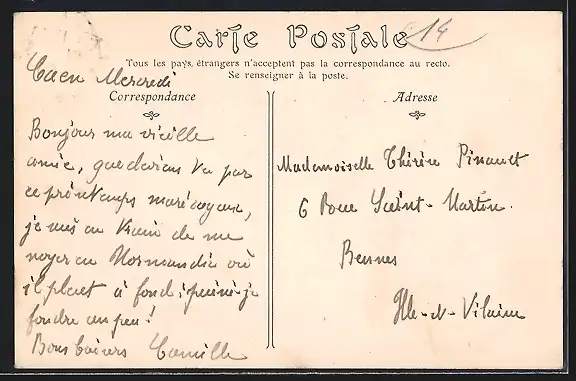 14
Carte Postale
Tous les pays étrangers n'acceptent pas la correspondance au recto.
Se renseigner à la poste.
Caen Mercredi
Correspondance
Bonjour ma vieille
amie, que deviens tu par
ce printemps marécageux,
je suis en train de me
noyer en Normandie où
il pleut à fond; puissé-je
fondre un peu!
Bons baisers Camille
Adresse
Mademoiselle Thérèse Pinault
6 Boue Saint-Martin
Rennes
Ille-et-Vilaine